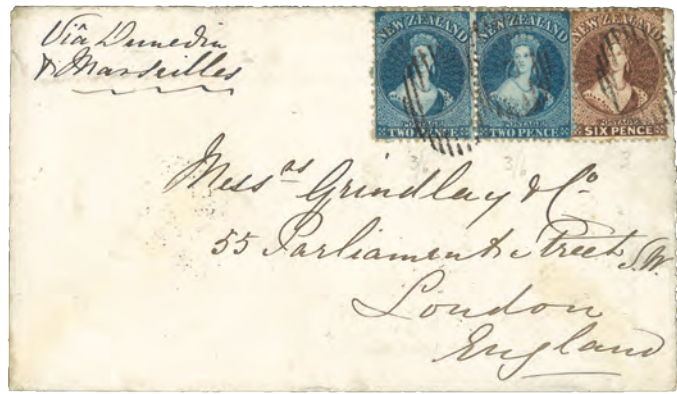 Via Dunedin
& Marseilles
NEW ZEALAND
POSTAGE
TWO PENCE
NEW ZEALAND
POSTAGE
TWO PENCE
NEW ZEALAND
POSTAGE
SIX PENCE
3/6
3/6
3
Messrs Grindlay & Co
55 Parliament Street S.W.
London
England